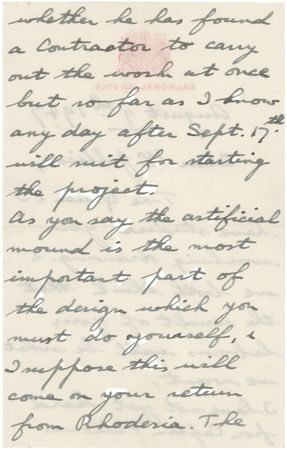 whether he has found
a Contractor to carry
out the work at once
but so far as I know
any day after Sept. 17th
will suit for starting
the project.
As you say the artificial
mound is the most
important part of
the design which you
must do yourself, &
I suppose this will
come on your return
from Rhodesia. The